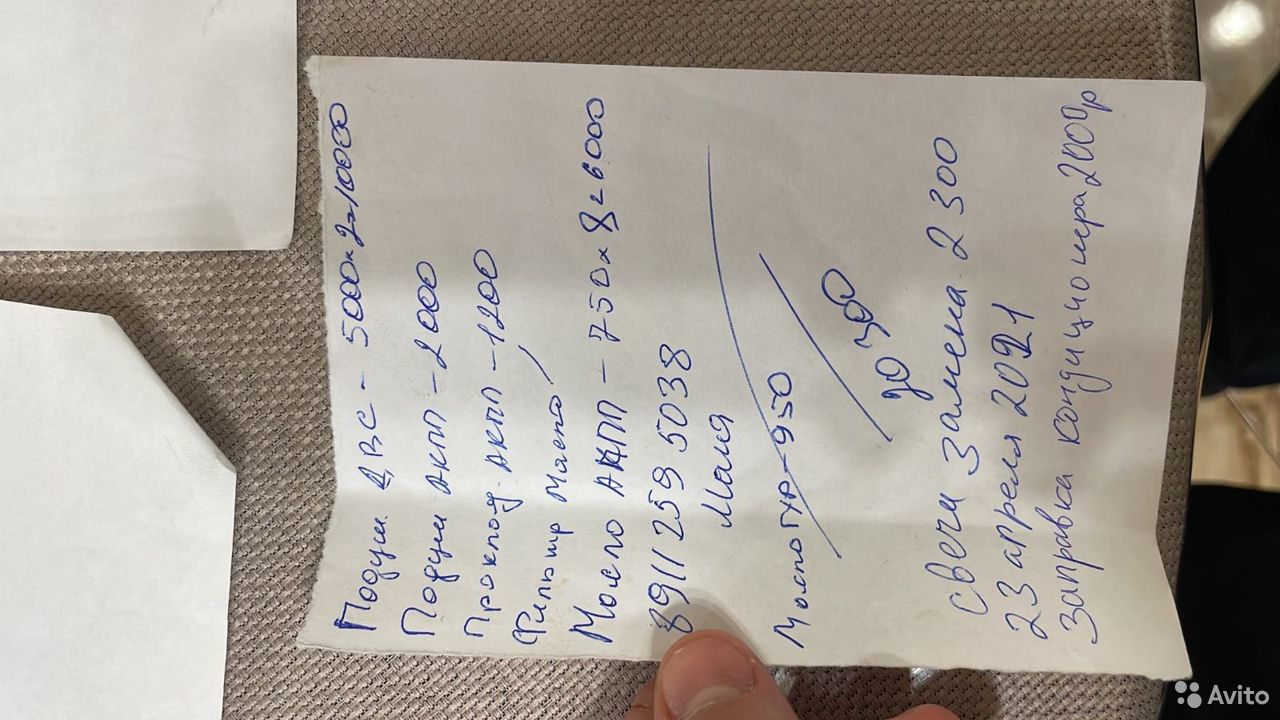 Подуш. ДВС - 5000х2=10000
Подуш АКПП - 2000
Проклад. АКПП - 1200
Фильтр Масло /
Масло АКПП - 750х8=6000
8911 259 5038
Маслогур - 950
20 300
свечи замена 2 300
23 апреля 2021
Заправка кондиционера 2000р
Avito